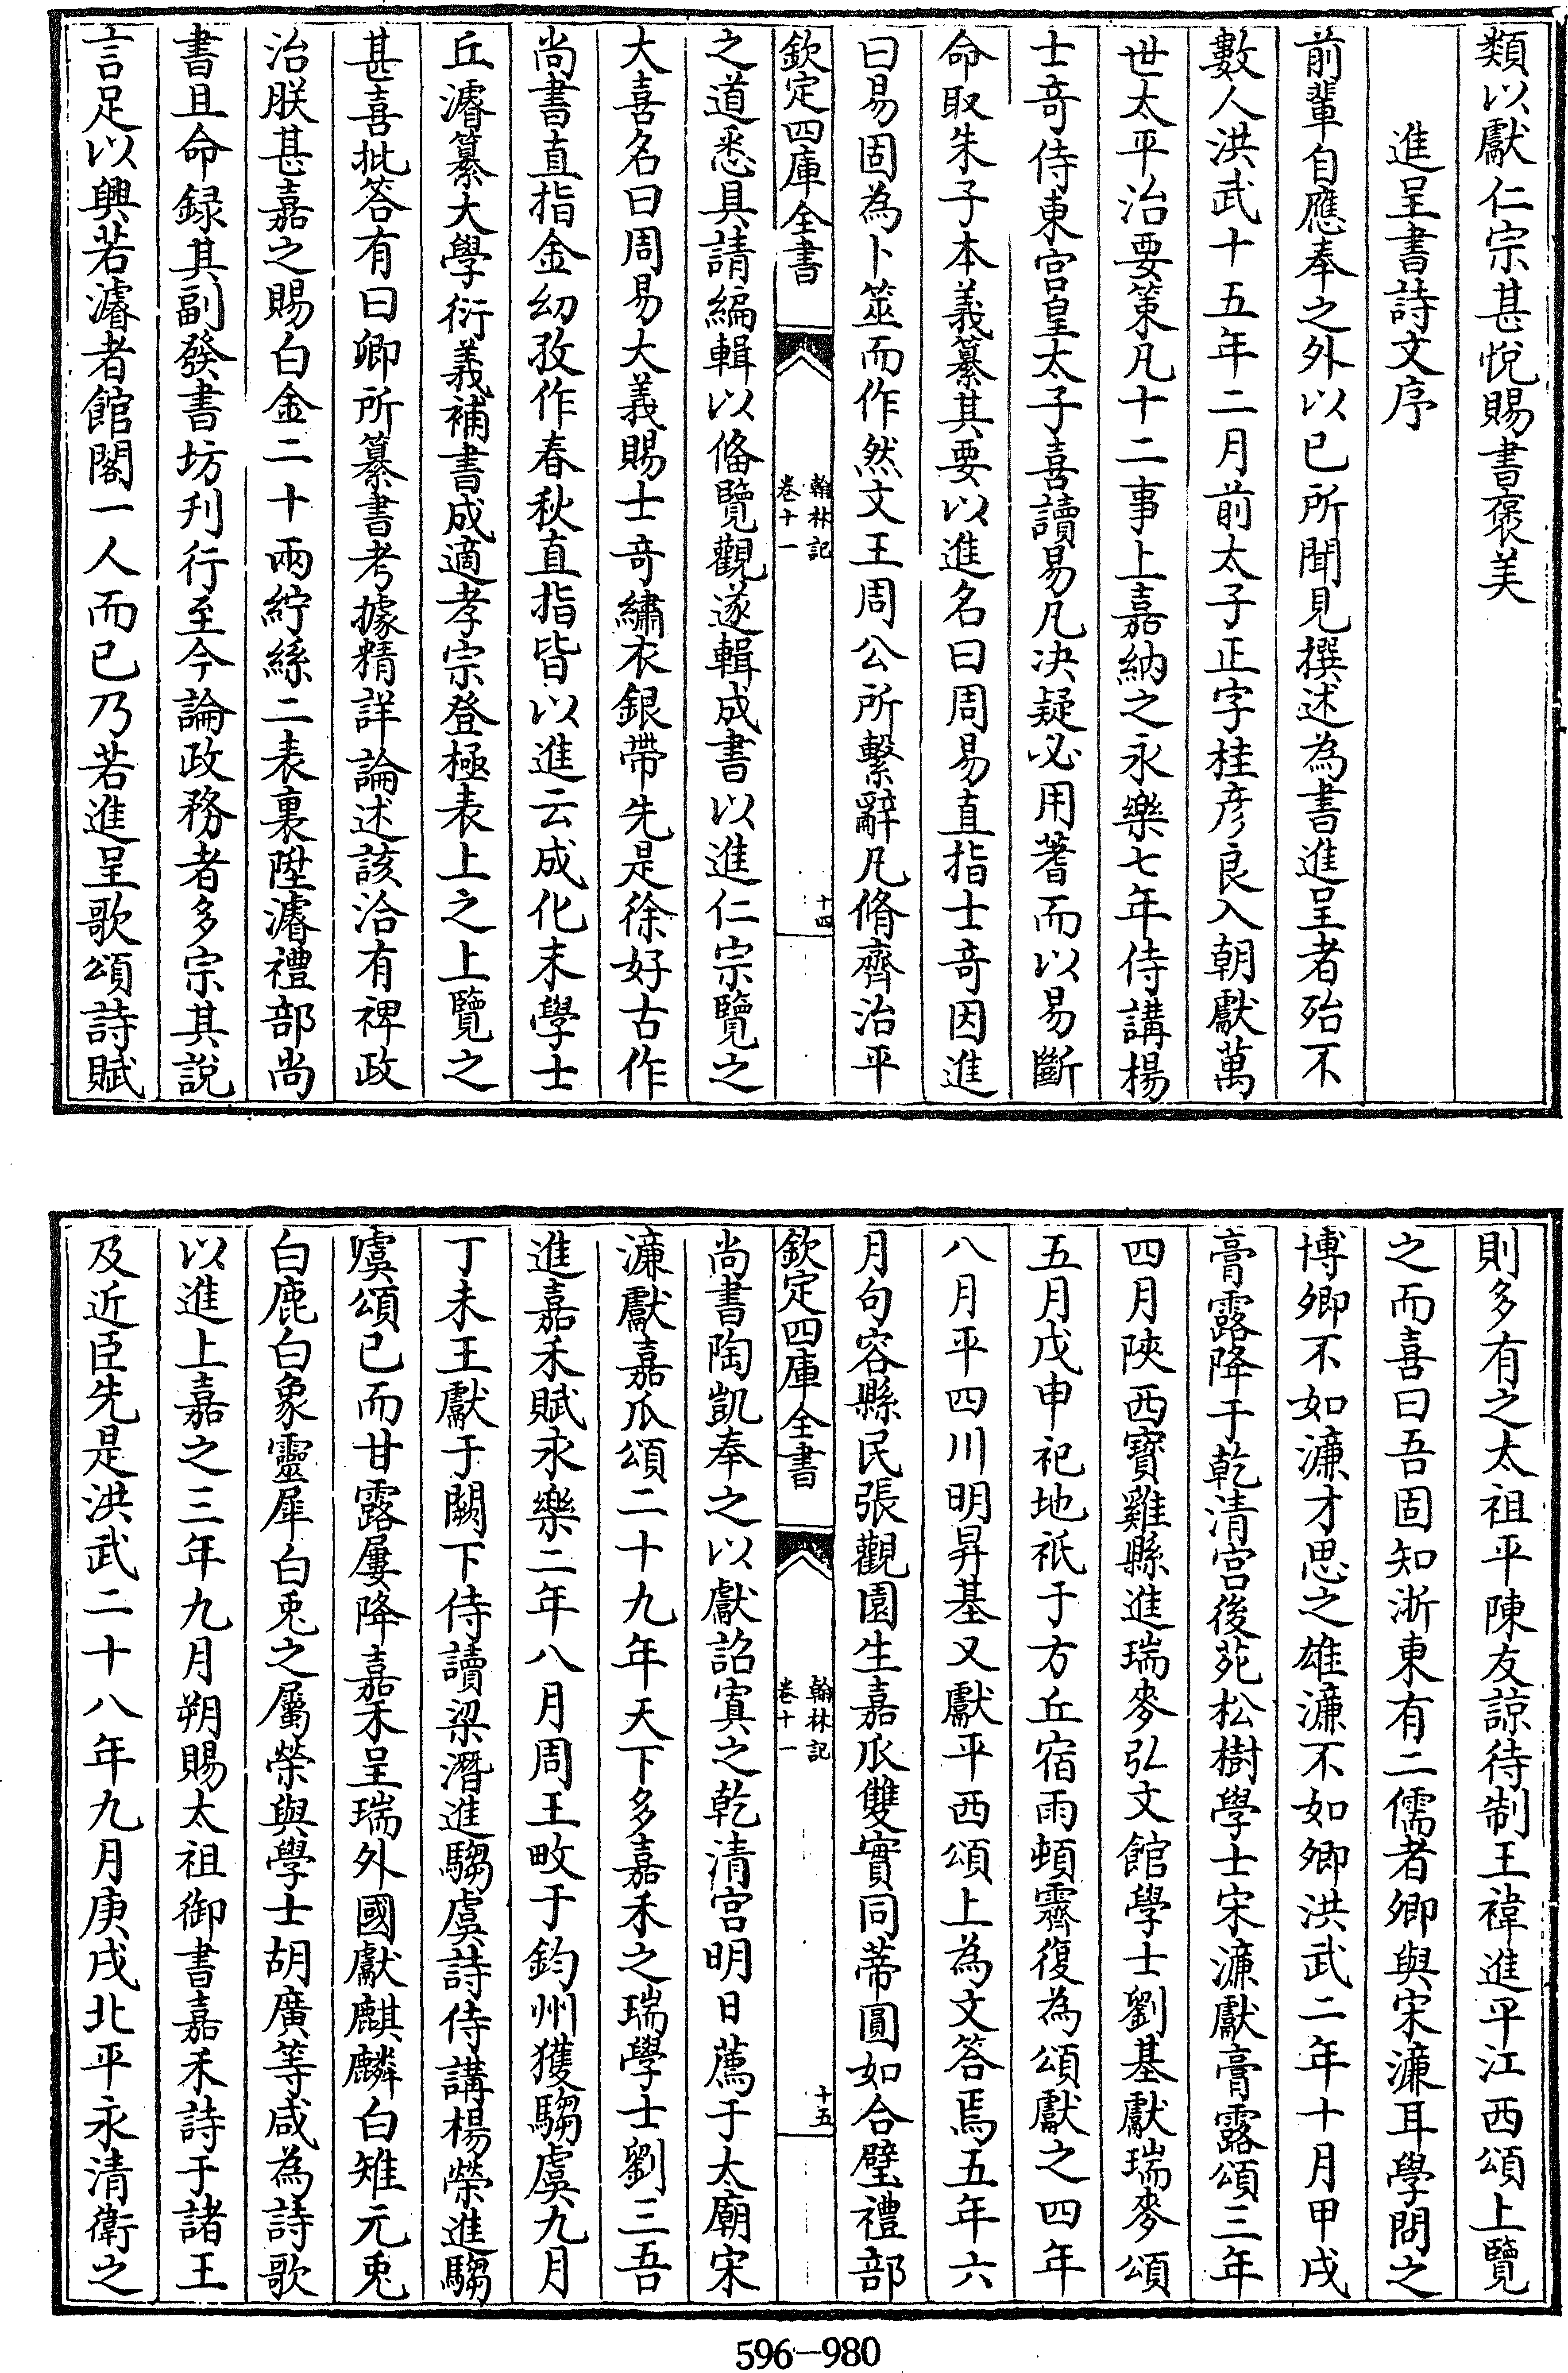 類以獻仁宗甚悅賜書褒美
進呈書詩文序
前輩自應奉之外以已所聞見撰述為書進呈者殆不
數人洪武十五年二月前太子正字桂彦良入朝獻萬
世太平治要策凡十二事上嘉納之永樂七年侍講楊
士竒侍東宫皇太子喜讀易凡決疑必用蓍而以易斷
命取朱子本義纂其要以進名曰周易直指士竒因進
曰易固為卜筮而作然文王周公所繫辭凡脩齊治平
欽定四庫全書
翰林記
卷十一
十四
之道悉具請編輯以備覽觀遂輯成書以進仁宗覽之
大喜名曰周易大義賜士竒繡衣銀帶先是徐好古作
尚書直指金幼孜作春秋直指皆以進云成化末學士
丘濬纂大學衍義補書成適孝宗登極表上之上覽之
甚喜批答有曰卿所纂書考據精詳論述該洽有裨政
治朕甚嘉之賜白金二十兩紵絲二表裏陞濬禮部尚
書且命録其副發書坊刋行至今論政務者多宗其說
言足以興若濬者館閣一人而已乃若進呈歌頌詩賦
則多有之太祖平陳友諒待制王禕進平江西頌上覽
之而喜曰吾固知浙東有二儒者卿與宋濂耳學問之
博卿不如濂才思之雄濂不如卿洪武二年十月甲戌
膏露降于乾清宫後苑松樹學士宋濂獻膏露頌三年
四月陝西寶雞縣進瑞麥弘文館學士劉基獻瑞麥頌
五月戊申祀地祇于方丘宿雨頓霽復為頌獻之四年
八月平四川明昇基又獻平西頌上為文答焉五年六
月句容縣民張觀園生嘉瓜雙實同蒂圓如合璧禮部
欽定四庫全書
翰林記
卷十一
十五
尚書陶凱奉之以獻詔寘之乾清宫明日薦于太廟宋
濂獻嘉瓜頌二十九年天下多嘉禾之瑞學士劉三吾
進嘉禾賦永樂二年八月周王畋于鈞州獲騶虞九月
丁未王獻于闕下侍讀梁潛進騶虞詩侍講楊榮進騶
虞頌已而甘露屢降嘉禾呈瑞外國獻麒麟白雉元兎
白鹿白象靈犀白兎之屬榮與學士胡廣等咸為詩歌
以進上嘉之三年九月朔賜太祖御書嘉禾詩于諸王
及近臣先是洪武二十八年九月庚戌北平永清衛之
596-980